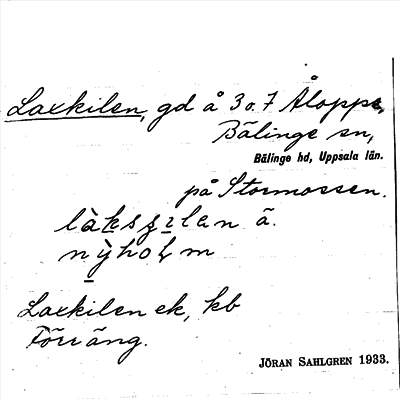 Laxkilen, gd å 3 o. 7 Åloppe,
Bälinge sn,
Bälinge hd, Uppsala län.
på Stormossen.
ä.
Laxkilen ek, kb
Förr äng.
JÖRAN SAHLGREN 1933.